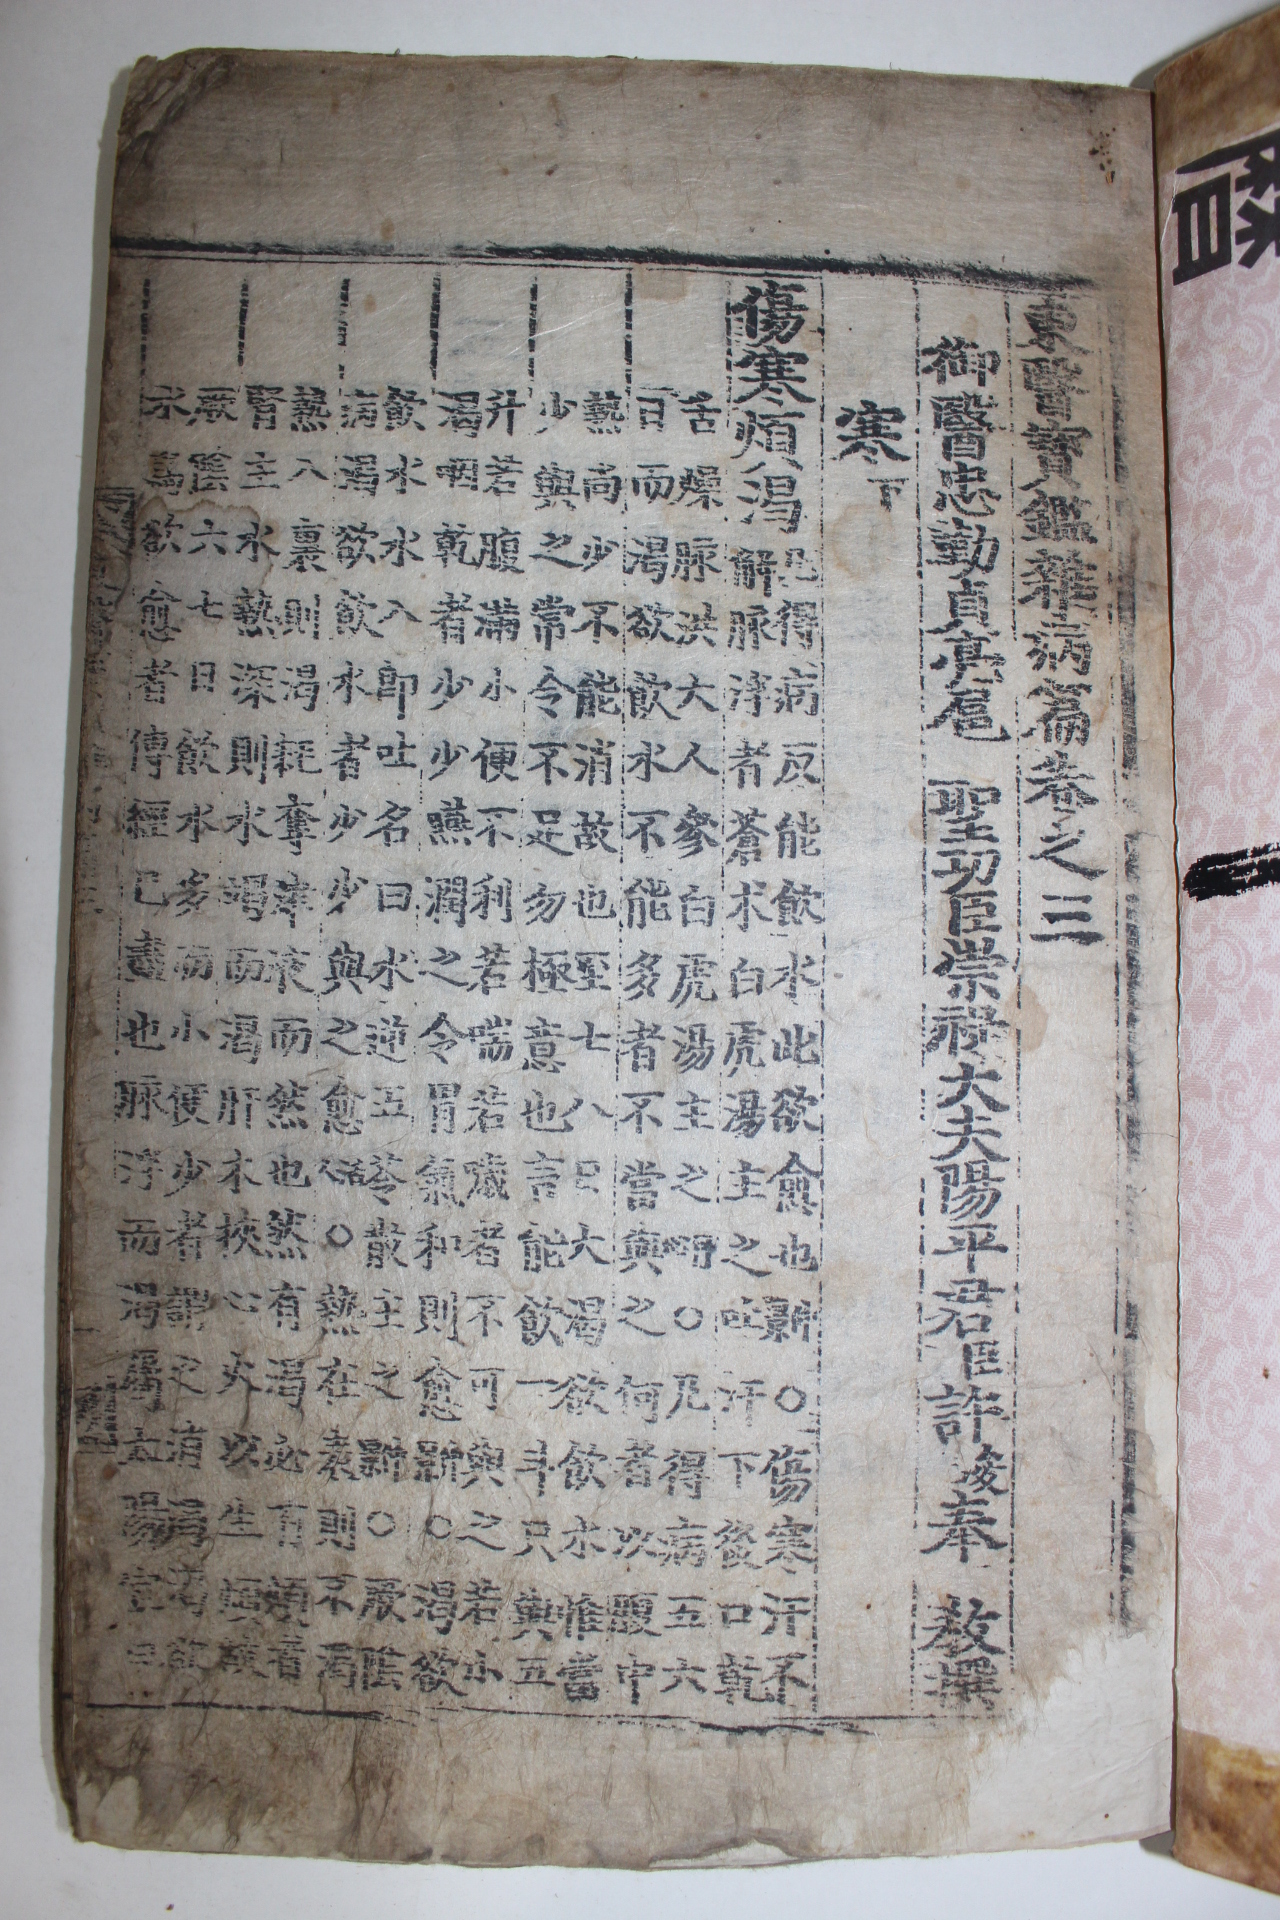 東醫寶鑑雜病篇卷之三
御醫忠勤貞亮扈 聖功臣崇祿大夫陽平君臣許浚奉 敎撰
寒下
傷寒煩渴 凡得病反能飮水此欲愈也新○傷寒汗不
解脉浮者蒼朮白虎湯主之吐汗下後口乾
舌燥脉洪大人參白虎湯主之明○凡得病五六
日而渴欲飮水不能多者不當與之何者以腹中
熱尚少不能消故也至七八日大渴欲飮水惟當
少與之常令不足勿極意也言能飮一斗只與五
升若腹滿小便不利若喘若噦者不可與之若小
渴咽乾者少少嚥潤之令胃氣和則愈新○渴欲
飮水水入卽吐名曰水逆五苓散主之新○厥陰
病渴欲飮水者少少與之愈活人○熱在表則不渴
熱入裏則渴耗奪津液而然也然有渴必有煩者
腎主水熱深則水竭而渴肝木挾心火以生煩故
厥陰六七日飮水多而小便少者謂之消渴渴欲
水爲欲愈者傳經已盡也脉浮而渴屬太陽